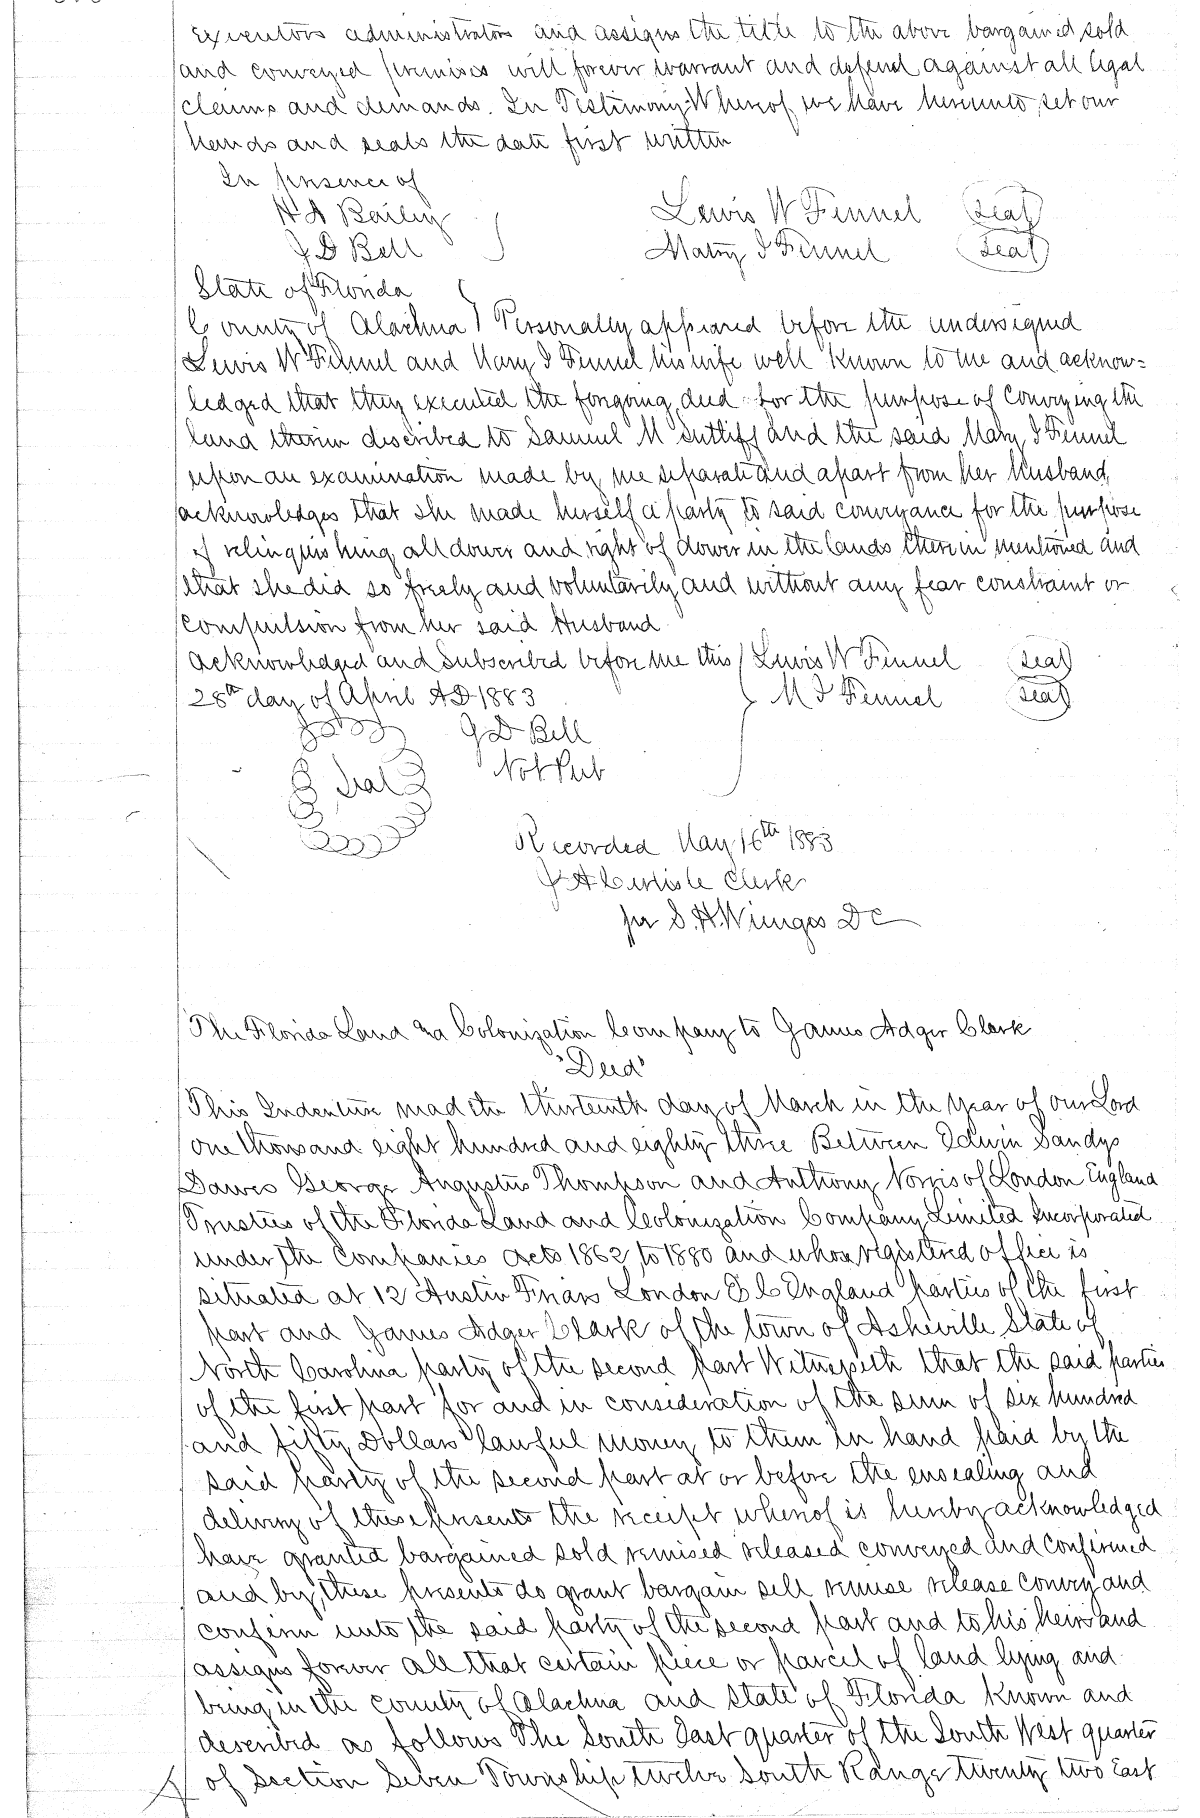 executors administrators and assigns the title to the above bargained sold
and conveyed premises will forever warrant and defend against all legal
claims and demands. In Testimony Whereof we have hereunto set our
hands and seals the date first written
In presence of
H A Bailey
J D Bell
Lewis W Fennel (seal)
Mary J Fennel (seal)
State of Florida
County of Alachua } Personally appeared before the undersigned
Lewis W Fennel and Mary J Fennel his wife well known to me and acknow=
ledged that they executed the forgoing deed for the purpose of conveying the
land therein described to Samuel M Suttiff and the said Mary J Fennel
upon an examination made by me separate and apart from her Husband,
acknowledges that she made herself a party to said conveyance for the purpose
of relinquishing all dower and right of dower in the lands therein mentioned and
that she did so freely and voluntarily and without any fear constraint or
compulsion from her said Husband
Acknowledged and Subscribed before me this } Lewis W Fennel (seal)
28th day of April AD 1883 } M J Fennel (seal)
J D Bell
Seal Not Pub
Recorded May 16th 1883
J A Carlisle Clerk
per S. H. Wienges DC
The Florida Land & Colonization Company to James Adger Clark
"Deed"
This Indenture made the thirteenth day of March in the year of our Lord
one thousand eight hundred and eighty three Between Edwin Sandys
Dawes George Augustus Thompson and Anthony Norris of London England
Trustees of the Florida Land and Colonization Company Limited Incorporated
under the Companies Acts 1862 to 1880 and whose registered office is
situated at 12 Austin Friars London E C England parties of the first
part and James Adger Clark of the town of Asheville State of
North Carolina party of the second part Witnesseth that the said parties
of the first part for and in consideration of the sum of six hundred
and fifty Dollars lawful money to them in hand paid by the
said party of the second part at or before the ensealing and
delivery of these presents the receipt whereof is hereby acknowledged
have granted bargained sold remised released conveyed and confirmed
and by these presents do grant bargain sell remise release convey and
confirm unto the said party of the second part and to his heirs and
assigns forever all that certain piece or parcel of land lying and
being in the county of Alachua and State of Florida known and
described as follows The South East quarter of the South West quarter
of Section Seven Township twelve South Range twenty two East